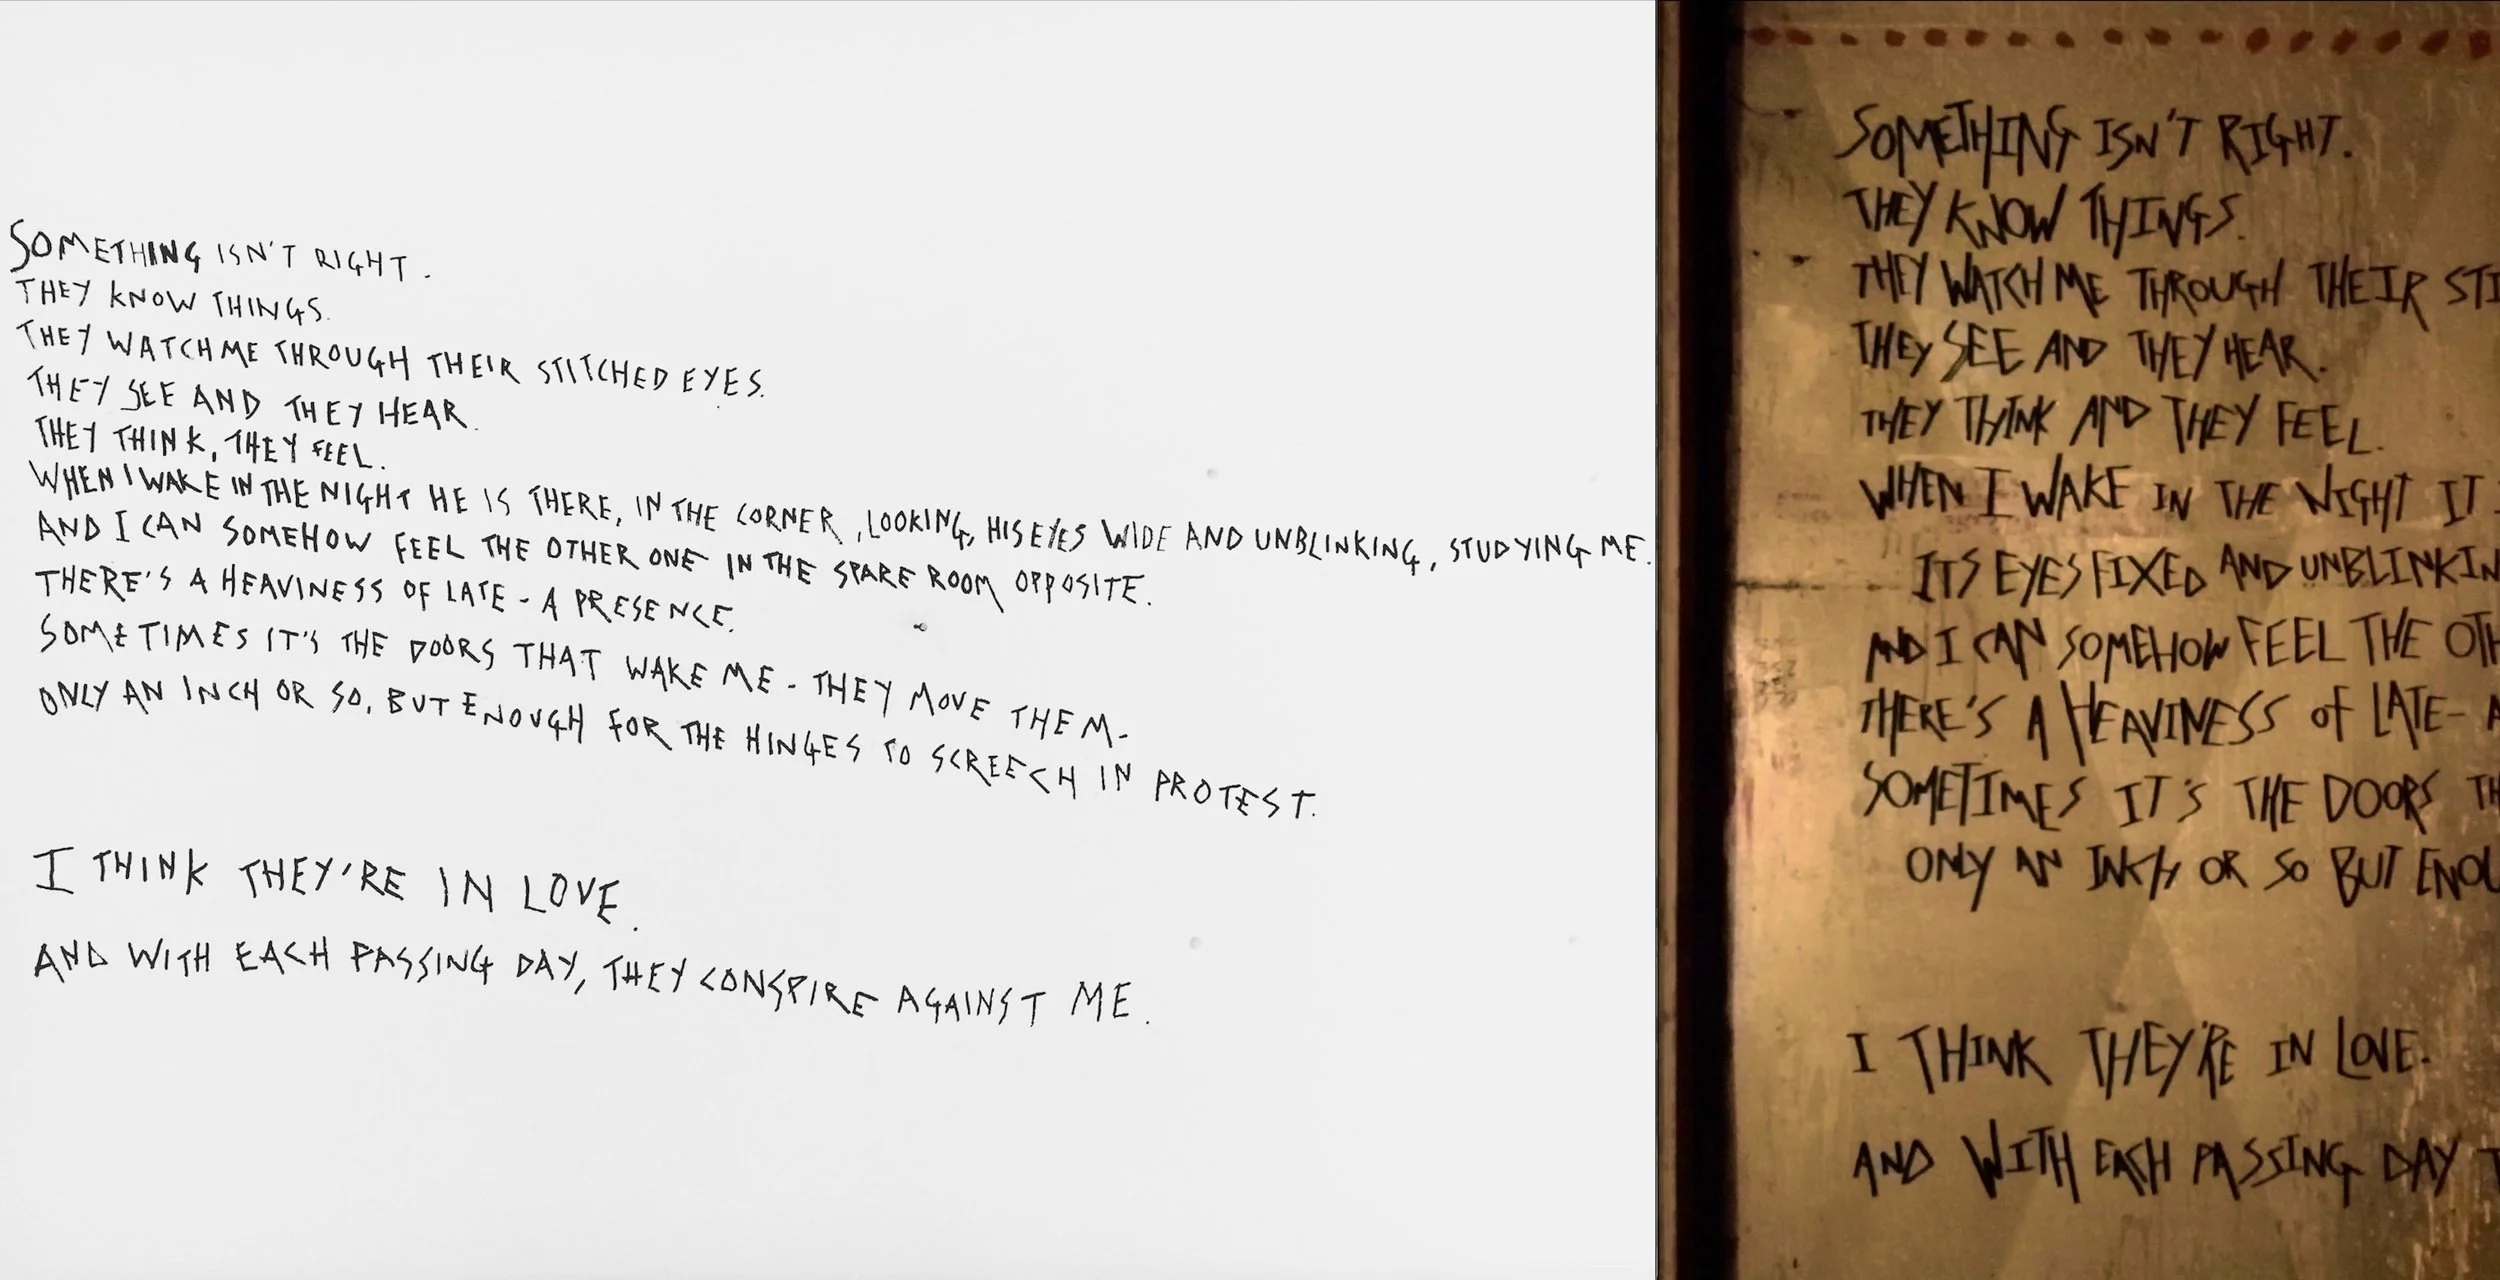 SOMETHING ISN'T RIGHT.
THEY KNOW THINGS.
THEY WATCH ME THROUGH THEIR STITCHED EYES.
THEY SEE AND THEY HEAR.
THEY THINK, THEY FEEL.
WHEN I WAKE IN THE NIGHT HE IS THERE, IN THE CORNER, LOOKING, HIS EYES WIDE AND UNBLINKING, STUDYING ME.
AND I CAN SOMEHOW FEEL THE OTHER ONE IN THE SPARE ROOM OPPOSITE.
THERE'S A HEAVINESS OF LATE - A PRESENCE.
SOMETIMES IT'S THE DOORS THAT WAKE ME - THEY MOVE THEM -
ONLY AN INCH OR SO, BUT ENOUGH FOR THE HINGES TO SCREECH IN PROTEST.
I THINK THEY'RE IN LOVE.
AND WITH EACH PASSING DAY, THEY CONSPIRE AGAINST ME.
SOMETHING ISN'T RIGHT.
THEY KNOW THINGS.
THEY WATCH ME THROUGH THEIR STI
THEY SEE AND THEY HEAR.
THEY THINK AND THEY FEEL.
WHEN I WAKE IN THE NIGHT IT
ITS EYES FIXED AND UNBLINKIN
AND I CAN SOMEHOW FEEL THE OTH
THERE'S A HEAVINESS OF LATE - A
SOMETIMES IT'S THE DOORS TH
ONLY AN INCH OR SO BUT ENOU
I THINK THEY'RE IN LOVE.
AND WITH EACH PASSING DAY T